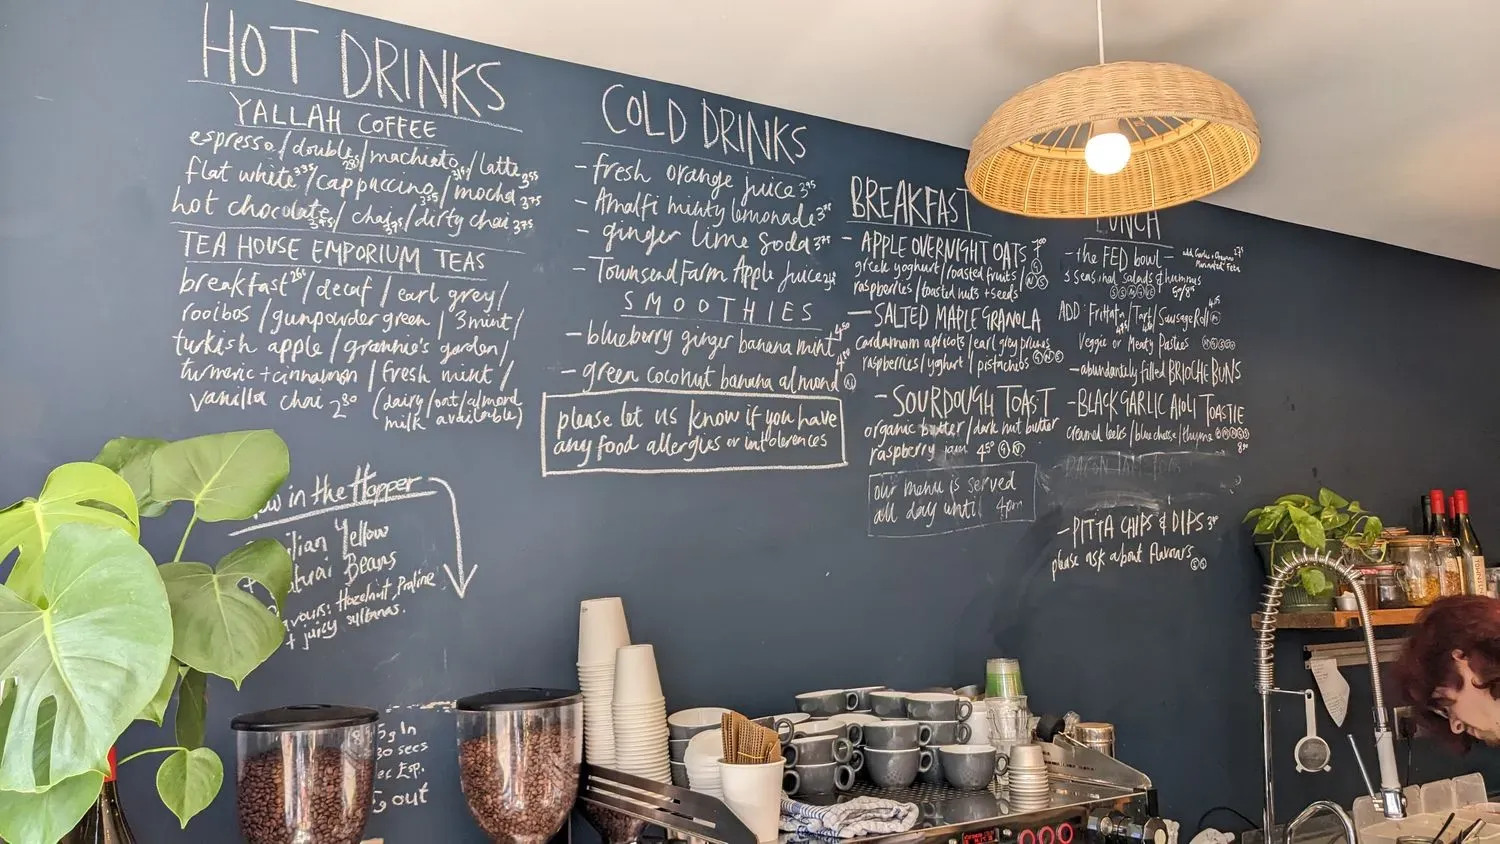 HOT DRINKS
YALLAH COFFEE
espresso / double / machiato / latte 355
flat white 335 / cappuccino 355 / mocha 375
hot chocolate 375 / chai 375 / dirty chai 375
TEA HOUSE EMPORIUM TEAS
breakfast 260 / decaf / earl grey /
rooibos / gunpowder green / 3 mint /
turkish apple / grannie's garden /
turmeric + cinnamon / fresh mint /
vanilla chai 280 (dairy / oat / almond
milk available)
in the Hopper
Yellow
Beans
Hazelnut, Praline
+ juicy sultanas.
30 secs
Esp.
out
COLD DRINKS
- fresh orange juice 395
- Amalfi minty lemonade
- ginger lime soda 375
- Townsend Farm Apple Juice
SMOOTHIES
- blueberry ginger banana mint 450
- green coconut banana almond 450 N
please let us know if you have
any food allergies or intolerences
BREAKFAST
- APPLE OVERNIGHT OATS
greek yoghurt / roasted fruits
raspberries / toasted nuts + seeds
- SALTED MAPLE GRANOLA
cardamom apricots / earl grey prunes
raspberries / yoghurt / pistachios
- SOURDOUGH TOAST
organic butter / dark nut butter
raspberry jam 450 G N
our menu is served
all day until 4pm
LUNCH
- the FED bowl -
3 seasonal salads & hummus
ADD: Frittata / Tart / Sausage Roll
Veggie or Meaty Pasties
- abundantly filled BRIOCHE BUNS
- BLACK GARLIC AIOLI TOASTIE
creamed leeks / blue cheese / thyme
- PITTA CHIPS & DIPS
please ask about flavours